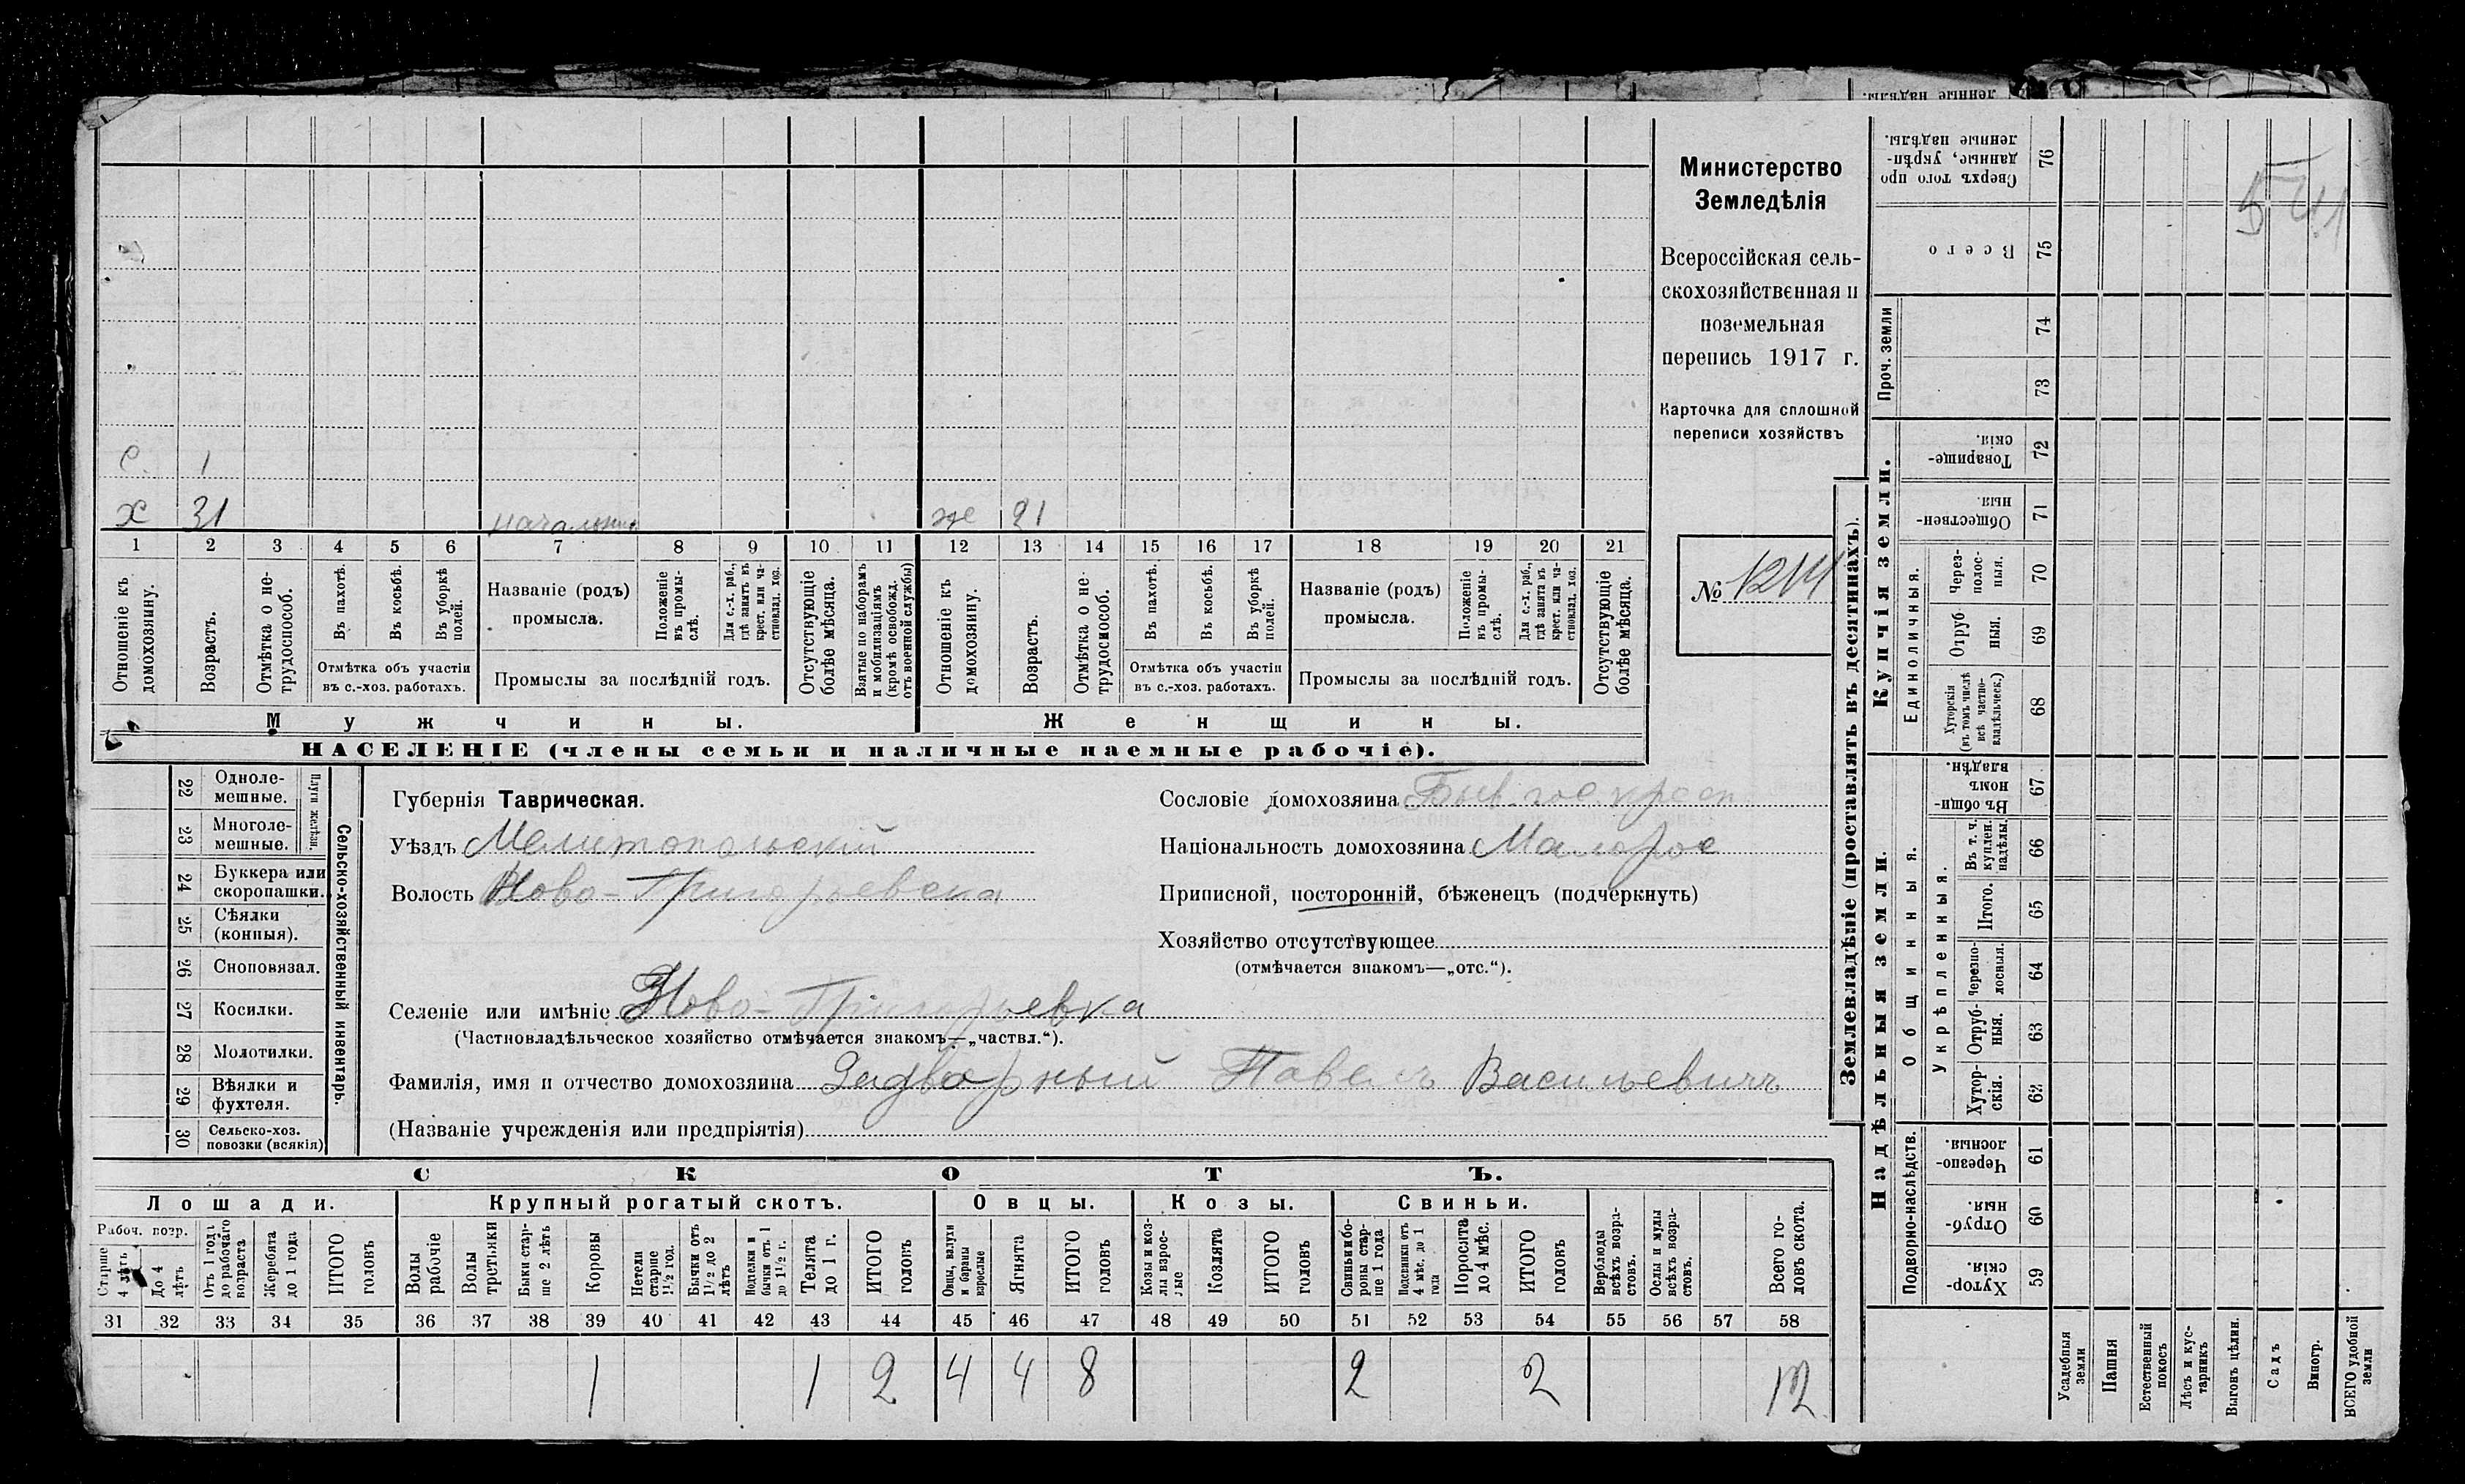 Министерство
Земледѣлія
Всероссійская сель-
скохозяйственная и
поземельная
перепись 1917 г.
Карточка для сплошной
переписи хозяйствъ
№ 1214
541
с. 1
х 31 же 21
1 2 3 4 5 6 7 8 9 10 11 12 13 14 15 16 17 18 19 20 21
Отношеніе къ домохозяину.
Возрастъ.
Отмѣтка о не-трудоспособ.
Въ пахотѣ.
Въ косьбѣ.
Въ уборкѣ полей.
Отмѣтка объ участіи
въ с.-хоз. работахъ.
Названіе (родъ)
промысла.
Положеніе въ промы-слѣ.
Для с.-х. раб., гдѣ занятъ въ крест. или ча-стновлад. хоз.
Промыслы за послѣдній годъ.
Отсутствующіе болѣе мѣсяца.
Взятые по наборамъ и мобилизаціямъ (кромѣ освобожд. отъ военной службы)
Отношеніе къ домохозяину.
Возрастъ.
Отмѣтка о не-трудоспособ.
Въ пахотѣ.
Въ косьбѣ.
Въ уборкѣ полей.
Отмѣтка объ участіи
въ с.-хоз. работахъ.
Названіе (родъ)
промысла.
Положеніе въ промы-слѣ.
Для с.-х. раб., гдѣ занята въ крест. или ча-стновлад. хоз.
Промыслы за послѣдній годъ.
Отсутствующіе болѣе мѣсяца.
Мужчины. Женщины.
НАСЕЛЕНІЕ (члены семьи и наличные наемные рабочіе).
Сельско-хозяйственный инвентарь.
Плуги желѣзн.
22 Одноле-мешные.
23 Многоле-мешные.
24 Буккера или скоропашки.
25 Сѣялки (конныя).
26 Сноповязал.
27 Косилки.
28 Молотилки.
29 Вѣялки и фухтеля.
30 Сельско-хоз. повозки (всякія)
Губернія Таврическая.
Уѣздъ Мелитопольскій
Волость Ново-Григорьевска
Селеніе или имѣніе Ново-Григорьевка
(Частновладѣльческое хозяйство отмѣчается знакомъ—„частвл.“).
Фамилія, имя и отчество домохозяина Задворный Павелъ Васильевичъ
(Названіе учрежденія или предпріятія)
Сословіе домохозяина Быв. гос. крест
Національность домохозяина Малорос
Приписной, посторонній, бѣженецъ (подчеркнуть)
Хозяйство отсутствующее
(отмѣчается знакомъ—„отс.“).
СКОТЪ.
Лошади. Крупный рогатый скотъ. Овцы. Козы. Свиньи.
Рабоч. возр.
Старше 4 лѣтъ
До 4 лѣтъ
Отъ 1 года до рабочаго возраста
Жеребята до 1 года
ИТОГО головъ
Волы рабочіе
Волы третьяки
Быки стар-ше 2 лѣтъ
Коровы
Нетели старше 1½ год.
Бычки отъ 1½ до 2 лѣтъ
Подтелки и бычки отъ 1 до 1½ г.
Телята до 1 г.
ИТОГО головъ
Овцы, валухи и бараны взрослые
Ягнята
ИТОГО головъ
Козы и коз-лы взрос-лые
Козлята
ИТОГО головъ
Свиньи и бо-ровы стар-ше 1 года
Подсвинки отъ 4 мѣс. до 1 года
Поросята до 4 мѣс.
ИТОГО головъ
Верблюды всѣхъ возра-стовъ.
Ослы и мулы всѣхъ возра-стовъ.
Всего го-ловъ скота.
31 32 33 34 35 36 37 38 39 40 41 42 43 44 45 46 47 48 49 50 51 52 53 54 55 56 57 58
1 1 2 4 4 8 2 2 12
Землевладѣніе (проставлять въ десятинахъ).
Сверхъ того про-данные, укрѣп-ленные надѣлы. 76
Всего 75
Проч. земли 74 73
Купчія земли.
Товарище-скія. 72
Обществен-ныя. 71
Единоличныя.
Через-полос-ныя. 70
Отруб-ныя. 69
Хуторскія (въ томъ числѣ всѣ частно-владѣльческ.) 68
Надѣльныя земли.
Общинныя.
Въ общин-номъ владѣн. 67
Укрѣпленныя.
Въ т. ч. куплен. надѣлы. 66
Итого. 65
Черезпо-лосныя. 64
Отруб-ныя. 63
Хутор-скія. 62
Подворно-наслѣдств.
Черезпо-лосныя. 61
Отруб-ныя. 60
Хутор-скія. 59
Усадебныя земли
Пашня
Естественный покосъ
Лѣсъ и кус-тарникъ
Выгонъ цѣлин.
Садъ
Виногр.
ВСЕГО удобной земли